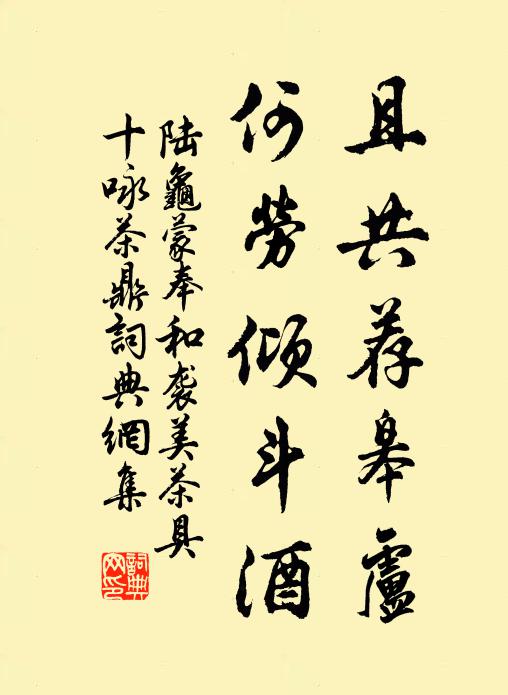 且共荐皋盧
何勞傾斗酒
陆龜蒙奉和袭美茶具
十咏茶鼎詞典網集
詞典網印